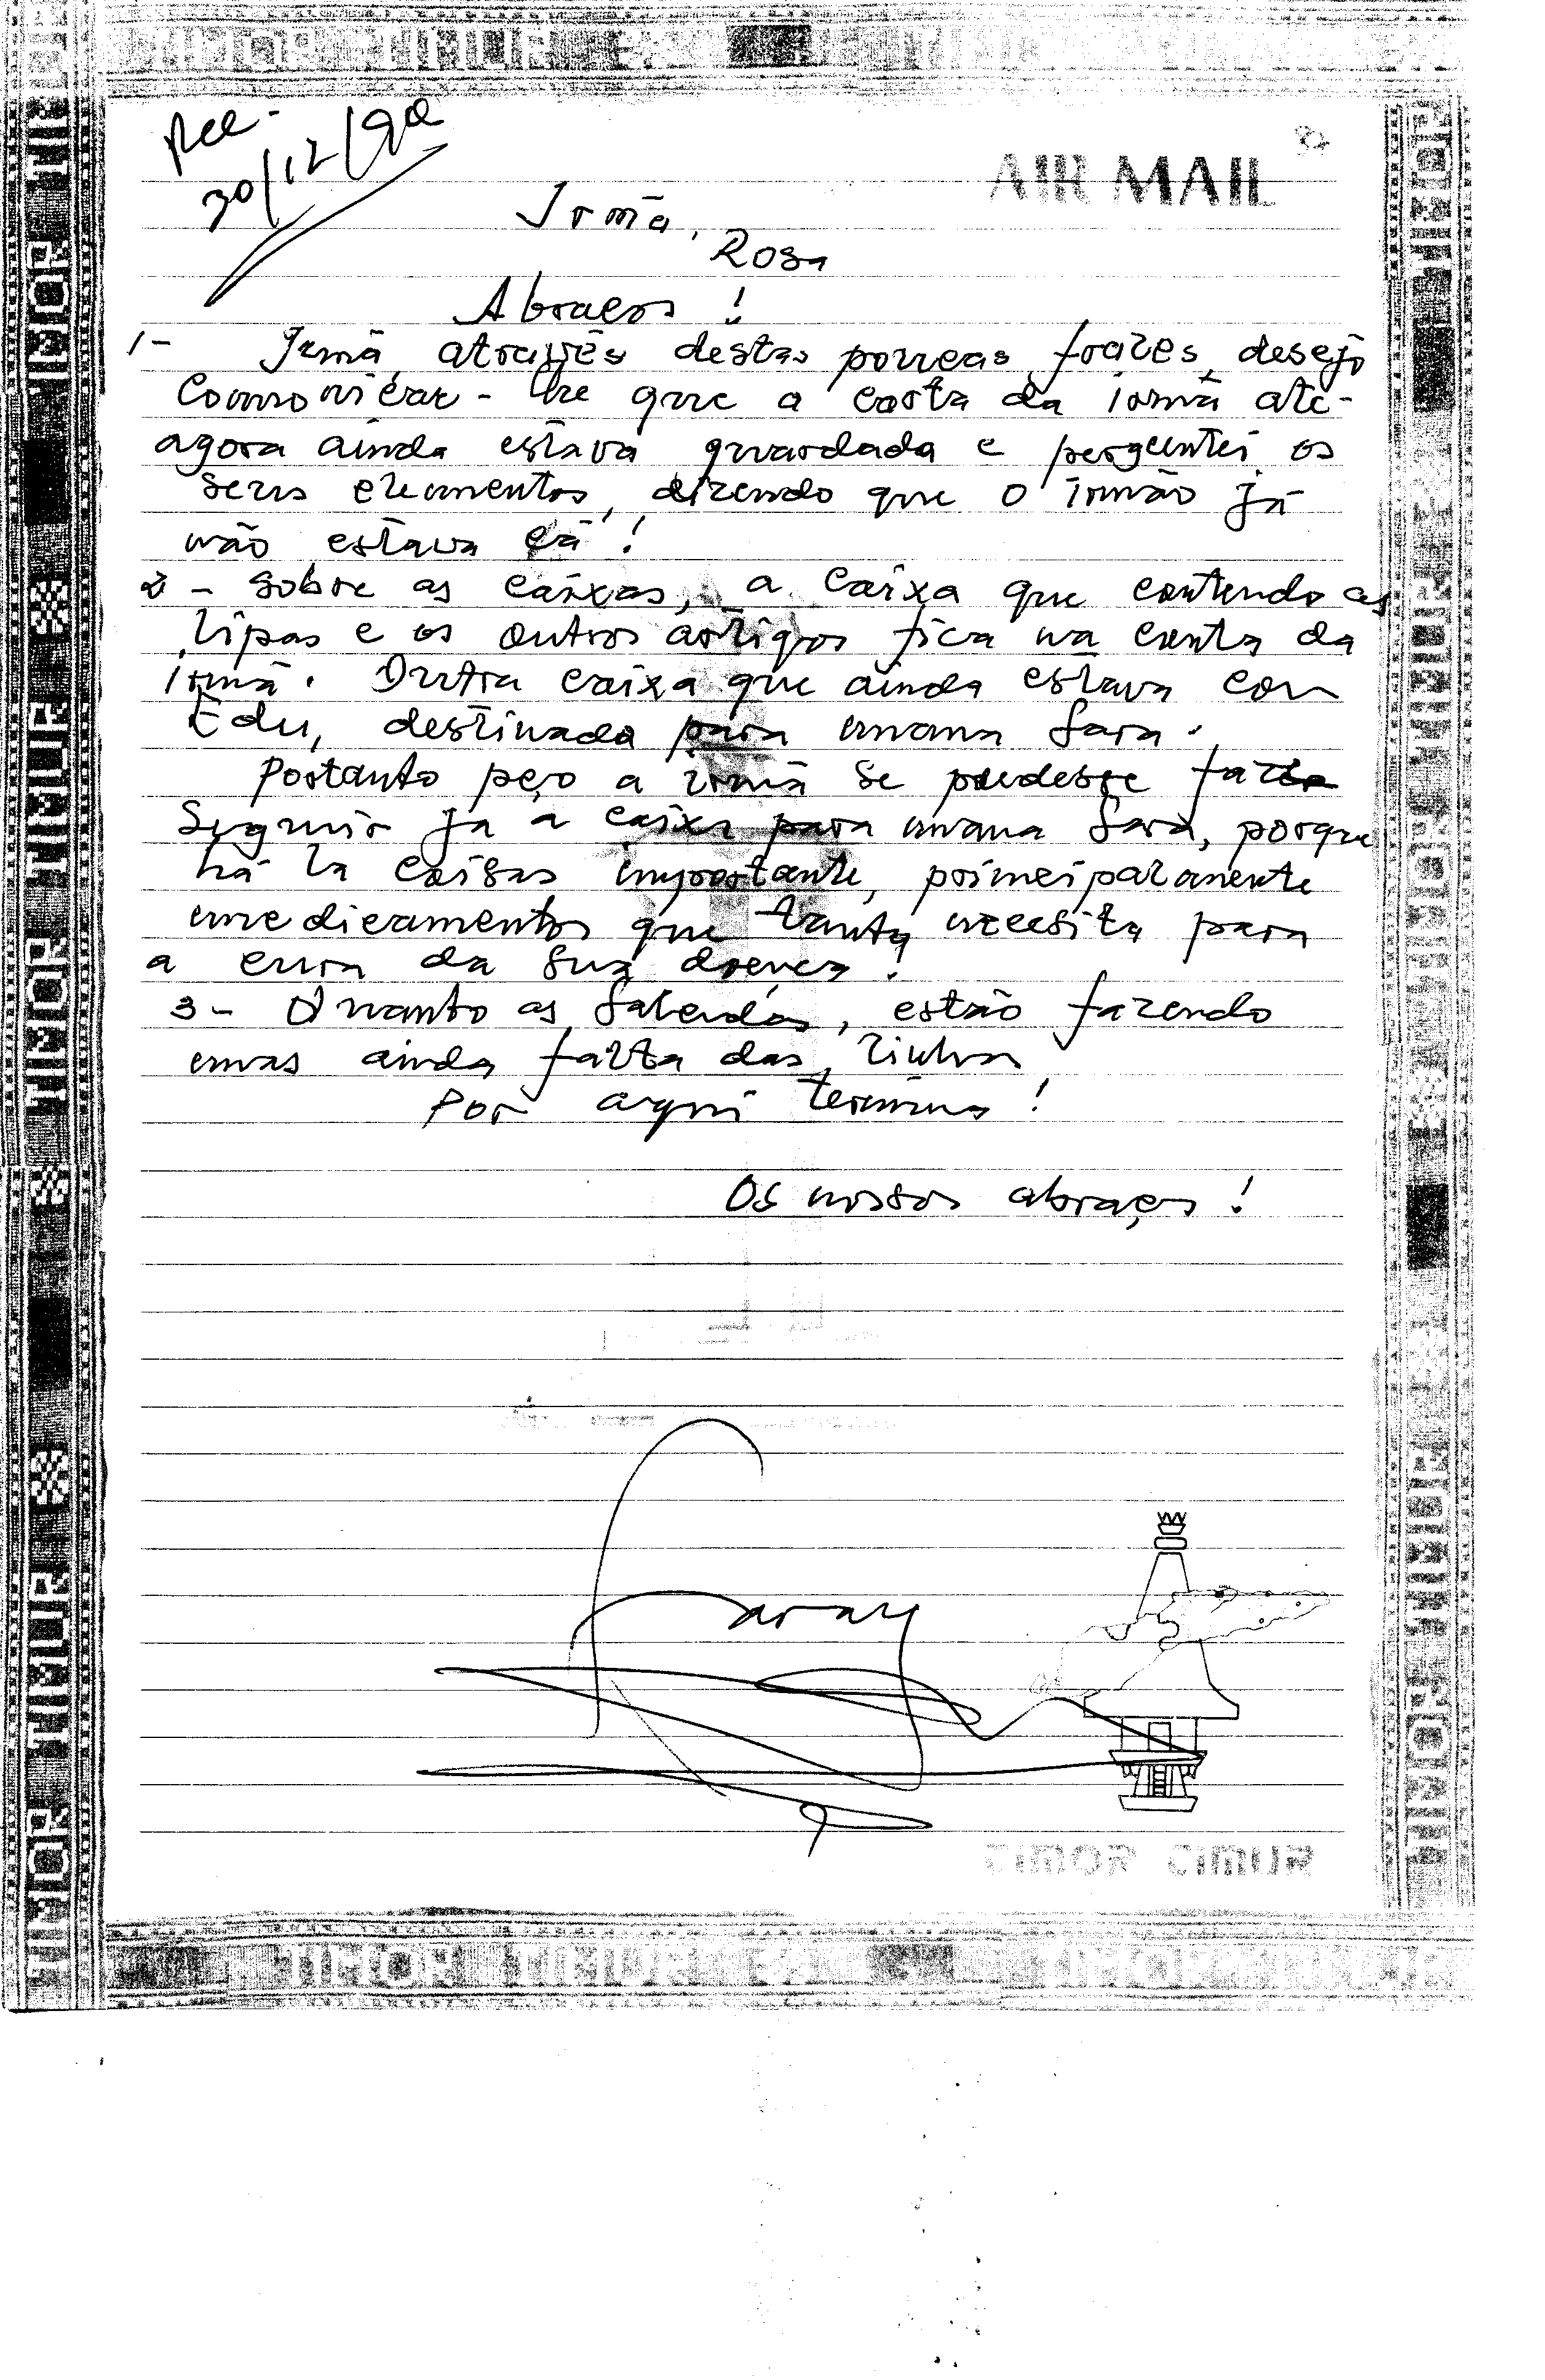 Rec-
30/12/90
AIR MAIL
Irmã,
Rosa
Abraços!
1- Irmã, através destas poucas frases, desejo
comunicar-lhe que a carta da irmã até-
agora ainda estava guardada e perguntei os
seus elementos, dizendo que o irmão já
não estava cá!
2- Sobre as caixas, a caixa que contendo as
lipas e os outros artigos fica na conta da
irmã. Outra caixa que ainda estava com
Edu, destinada para mana Sara.
Portanto peço a irmã se pudesse fazer
seguir já a caixa para mana Sara, porque
há lá coisas importante, principalmente
medicamentos que tanta necesita para
a cura da sua doença!
3- Quanto as Salendas, estão fazendo
mas ainda falta das linha
Por aqui termina!
Os nossos abraços!
TIMOR TIMUR